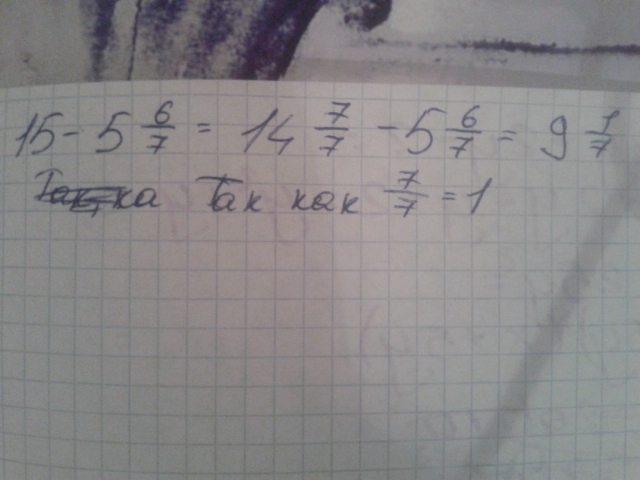 15 - 5 6/7 = 14 7/7 - 5 6/7 = 9 1/7
Так как 7/7 = 1